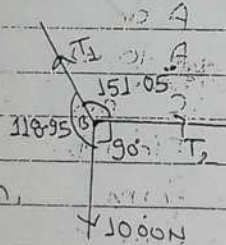 A
T1
A
151.05°
118.95
B
90°
T2
1000N